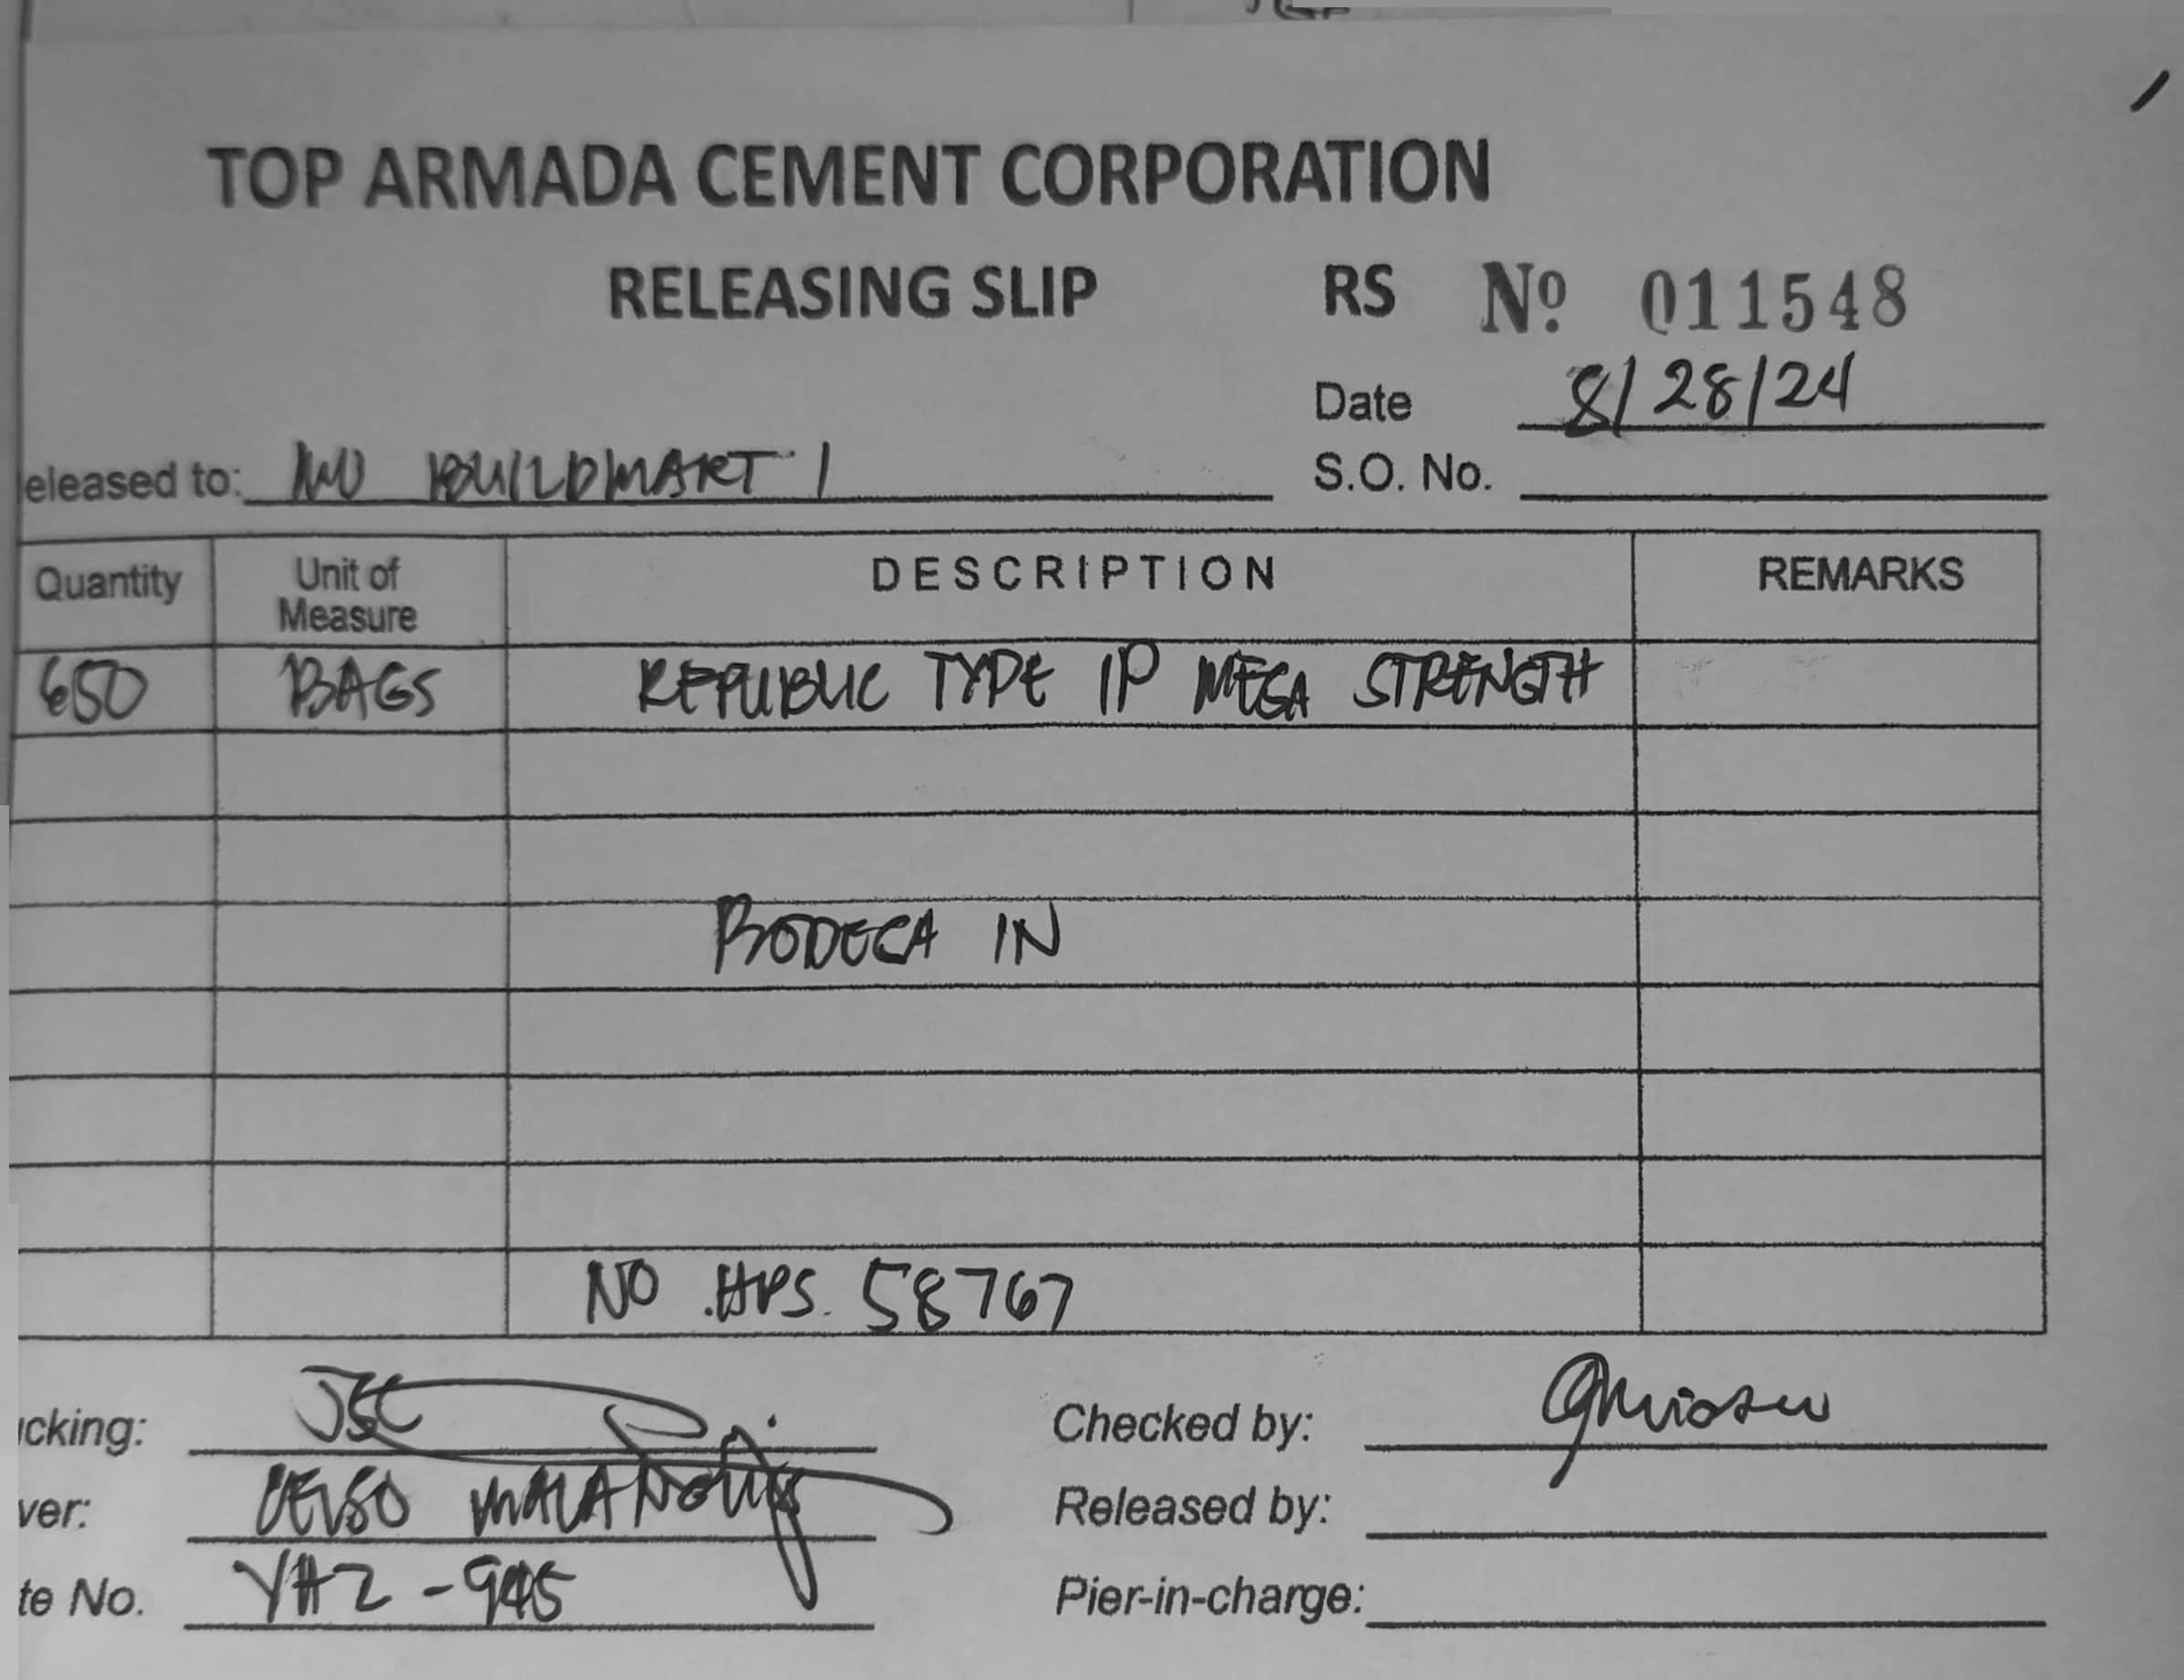 TOP ARMADA CEMENT CORPORATION
RELEASING SLIP RS Nº 011548
Date 8/28/24
eleased to: BUILDMART 1
S.O. No.
Quantity Unit of Measure DESCRIPTION REMARKS
650 BAGS REPUBLIC TYPE 1P MEGA STRENGTH
BODEGA IN
NO .HPS. 58767
cking: JSC Checked by:
ver: CELSO Released by:
te No. YHZ-945 Pier-in-charge: